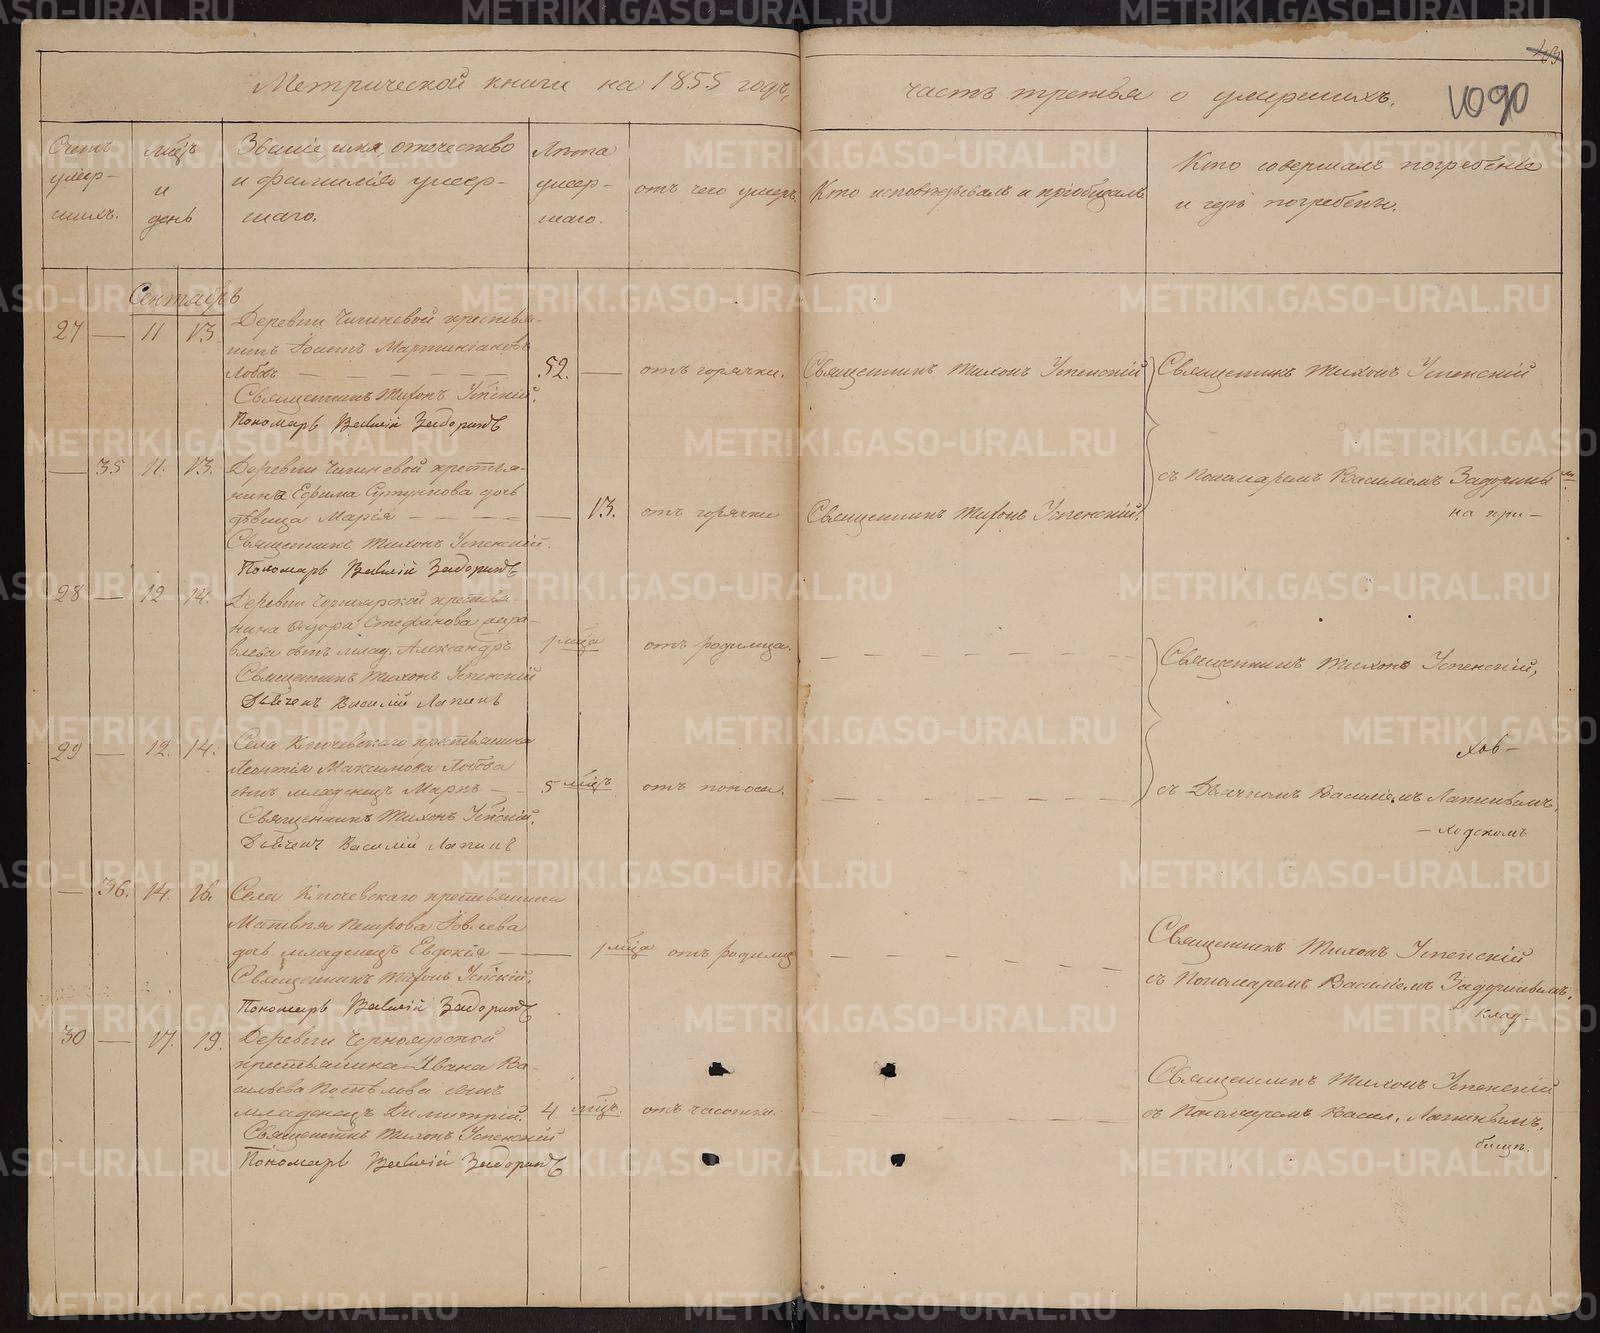 Метрической книги на 1855 годъ,
часть третья о умершихъ.
1090
Счетъ умер-
шихъ.
мѣцъ
и
день
Званіе, имя, отечество
и фамилія умер-
шаго.
Лѣта
умер-
шаго.
отъ чего умеръ.
Кто исповѣдывалъ и пріобщалъ
Кто совершалъ погребеніе
и гдѣ погребенъ.
Сентябрь
27 — 11 13
Деревни крестья-
нинъ Мартиніановъ
Лобовъ — — — — — 52. — отъ горячки. Священникъ Тихонъ Успенскій Священникъ Тихонъ Успенскій
Священникъ Тихонъ Успскій.
Пономарь Василій Задоринъ
— 35 11. 13. Деревни крестья-
нина Ефима дочь
съ Пономаремъ Василіемъ Задоринымъ
дѣвица Марія — — — — — 13. отъ горячки Священникъ Тихонъ Успенскій.
на при-
Священникъ Тихонъ Успенскій.
Пономарь Василій Задоринъ
28 — 12 14. Деревни Черноярской крестья-
нина Ѳедора Стефанова
сынъ млад. Александръ 1 мѣца отъ родимца. — — — —
Священникъ Тихонъ Успенскій,
Священникъ Тихонъ Успенскій
Дьячекъ Василій Лапинъ
29 — 12. 14. Села Ключевскаго крестьянина
Леонтія Максимова Лобова
сынъ младенецъ Маркъ — 5 мѣцъ. отъ поноса. — — — —
съ Дьячкомъ Василіемъ Лапинымъ,
Священникъ Тихонъ Успскій.
— ходскомъ
Дьячекъ Василій Лапинъ
— 36. 14. 16. Села Ключевскаго крестьянина
Матвѣя Петрова Іовлева
дочь младенецъ Евдокія — — 1 мѣца отъ родимц — — — —
Священникъ Тихонъ Успенскій
Священникъ Тихонъ Успскій.
съ Пономаремъ Василіемъ Задоринымъ,
Пономарь Василій Задоринъ
клад-
30 — 17. 19. Деревни Черноярской
крестьянина Ивана Ва-
сильева сынъ
Священникъ Тихонъ Успенскій
младенецъ Димитрій. 4. мѣцъ. отъ чахотки.
съ Пономаремъ Васил. Лапинымъ.
Священникъ Тихонъ Успенскій
бищѣ.
Пономарь Василій Задоринъ
METRIKI.GASO-URAL.RU